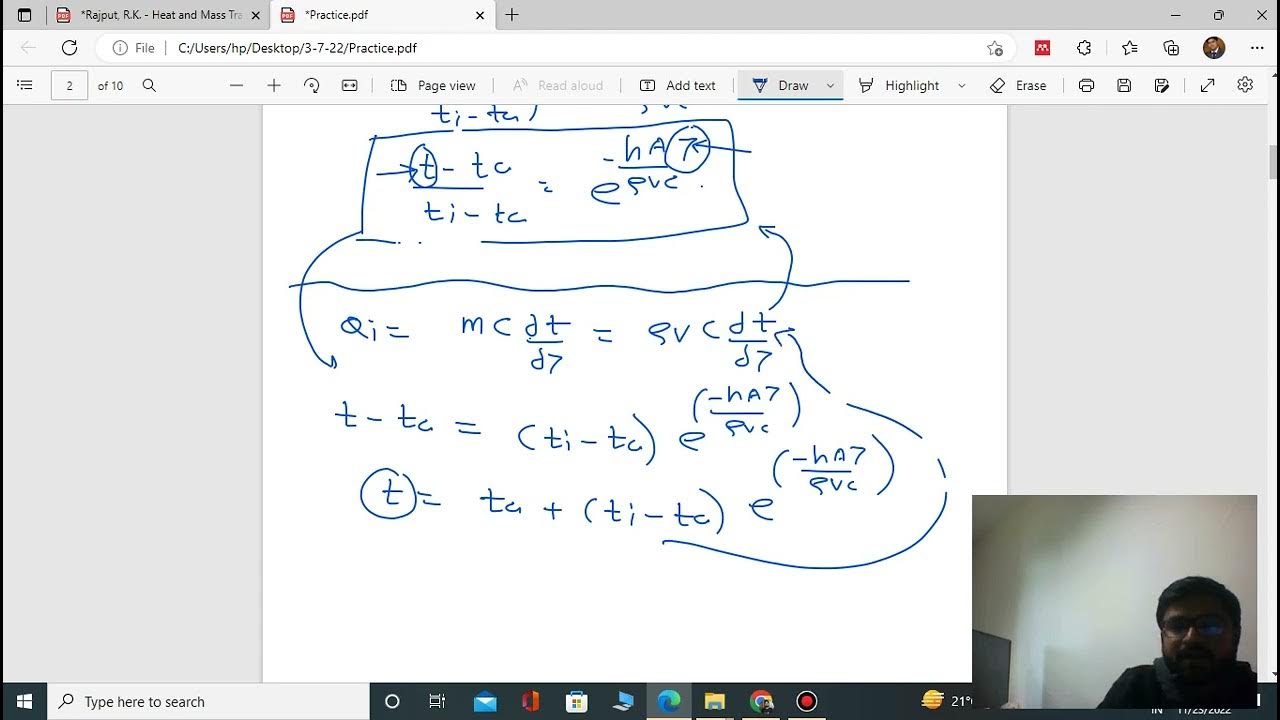 *Rajput, R.K. - Heat and Mass Tra
*Practice.pdf
File C:/Users/hp/Desktop/3-7-22/Practice.pdf
2 of 10 Page view Read aloud Add text Draw Highlight Erase
ti - ta)
t - ta / ti - ta = e^(-hAτ/ρVC)
Qi = mC dt/dτ = ρVC dt/dτ
t - ta = (ti - ta) e^(-hAτ/ρVC)
t = ta + (ti - ta) e^(-hAτ/ρVC)
Type here to search
21°
IN 11/23/2022